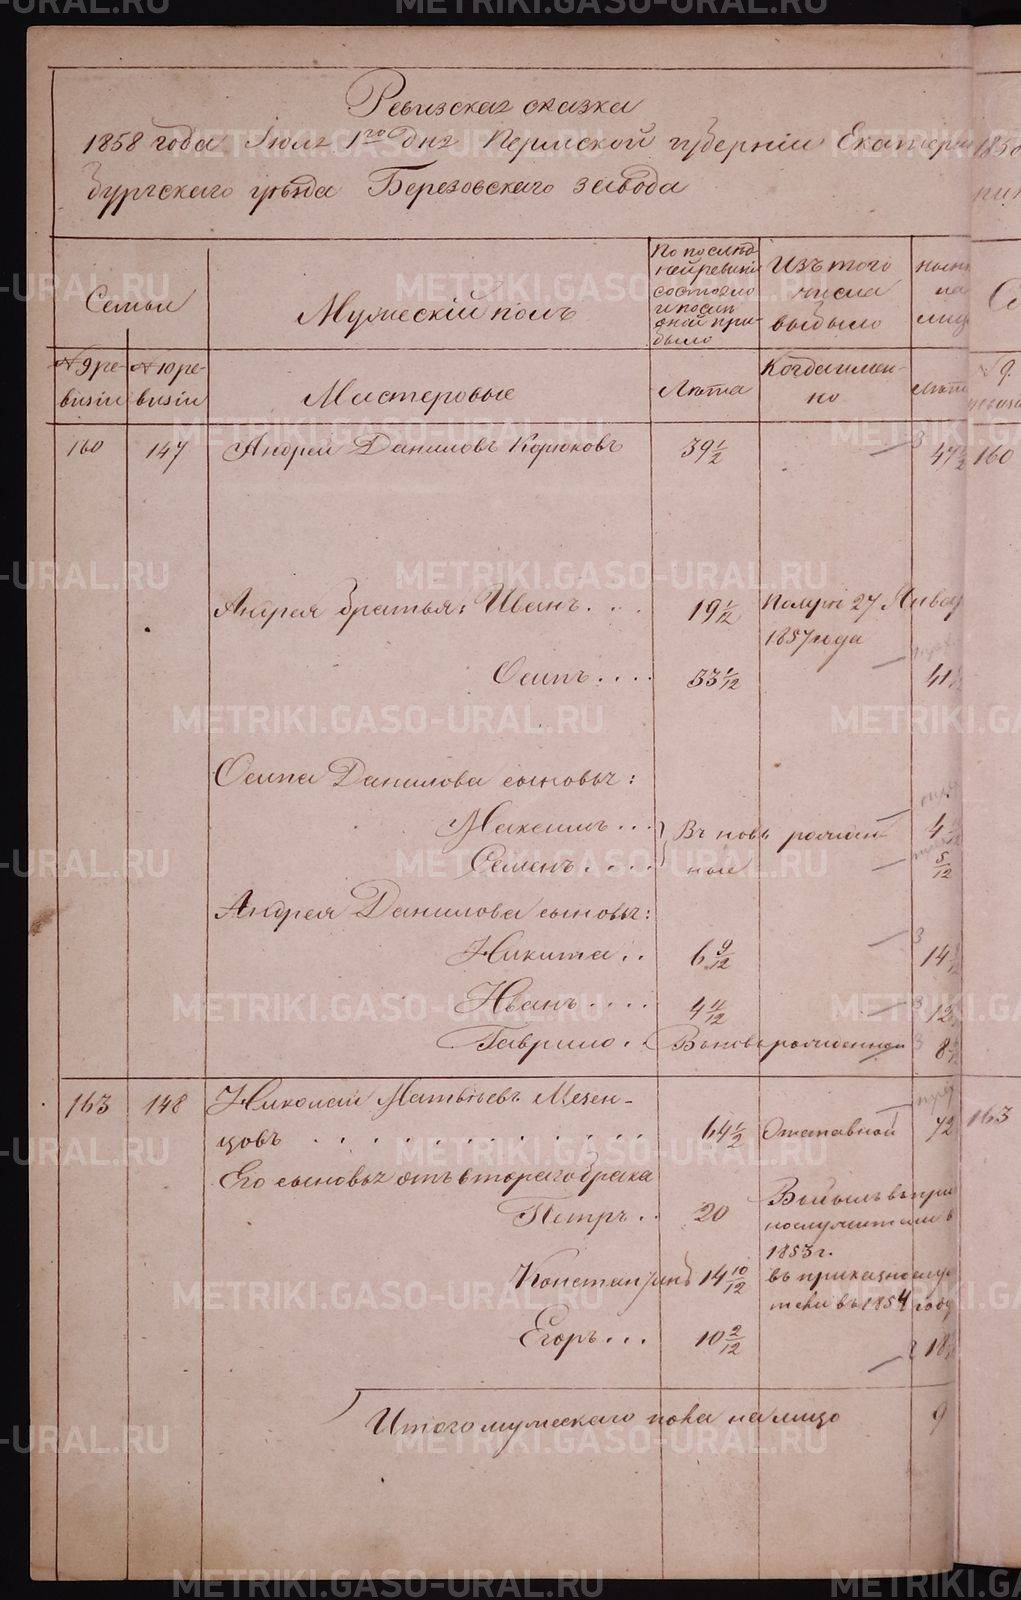 Ревизская сказка
1858 года Іюля 1го дня Пермской губерніи Екатерин
бургскаго уѣзда Березовскаго завода
Семьи
Мужескій полъ
По послѣд
ней ревизіи
состояло
и послѣ
оной при-
было
Изъ того
числа
выбыло
нынѣ
на
лицо
№ 9 ре-
визіи
№ 10 ре-
визіи
Мастеровые
Лѣта
Когда имен-
но
лѣта
160 147 Андрей Даниловъ Корюковъ 39 1/2 47 1/2
Андрея братья: Иванъ . . . 19 1/12 27 Янва
1857 года
Осипъ . . . . 33 1/12 41
Осипа Данилова сыновья:
Максимъ . . . Въ новь рожден
4
Семенъ . . . . ные 5/12
Андрея Данилова сыновья:
Никита . . 6 9/12 14
Иванъ . . . . 4 11/12 12
Гаврило . . Вновь рожденной 8
163 148 Николай Матвѣевъ Мезен-
цовъ . . . . . . . . . . . 64 1/2 Отставной 72
Его сыновья отъ втораго брака
Петръ . . 20 Выбылъ въ при
1853 г.
Константинъ 14 10/12 въ приказно
въ 1854 году
Егоръ . . . 10 2/12 18
Итого мужескаго пола на лицо 9
1850
160
163
METRIKI.GASO-URAL.RU